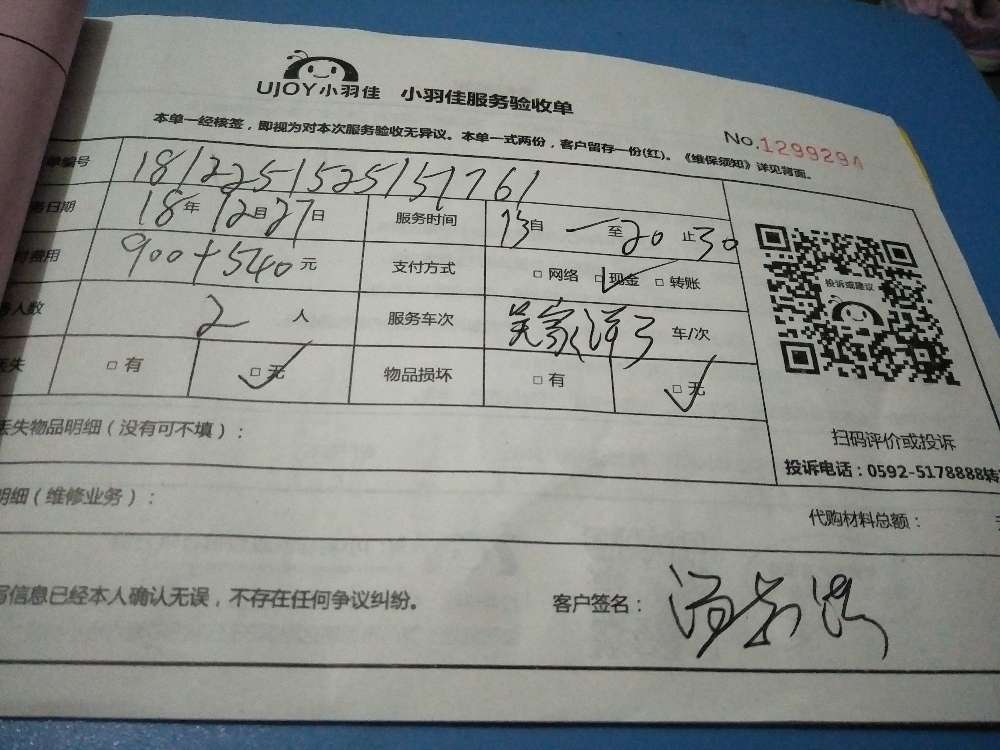 UJOY小羽佳 小羽佳服务验收单
本单一经核签，即视为对本次服务验收无异议。本单一式两份，客户留存一份(红)。《维保须知》详见背面。
No.1299294
单编号 1812251525151761
务日期 18年12月27日 服务时间 13自 一 至20 止30
费用 900+540元 支付方式 □ 网络 □ 现金 □ 转账
人数 2 人 服务车次 车/次
失 □ 有 □ 无 物品损坏 □ 有 □ 无
投诉或建议
扫码评价或投诉
投诉电话：0592-5178888转
丢失物品明细（没有可不填）：
明细（维修业务）： 代购材料总额：
写信息已经本人确认无误，不存在任何争议纠纷。 客户签名：